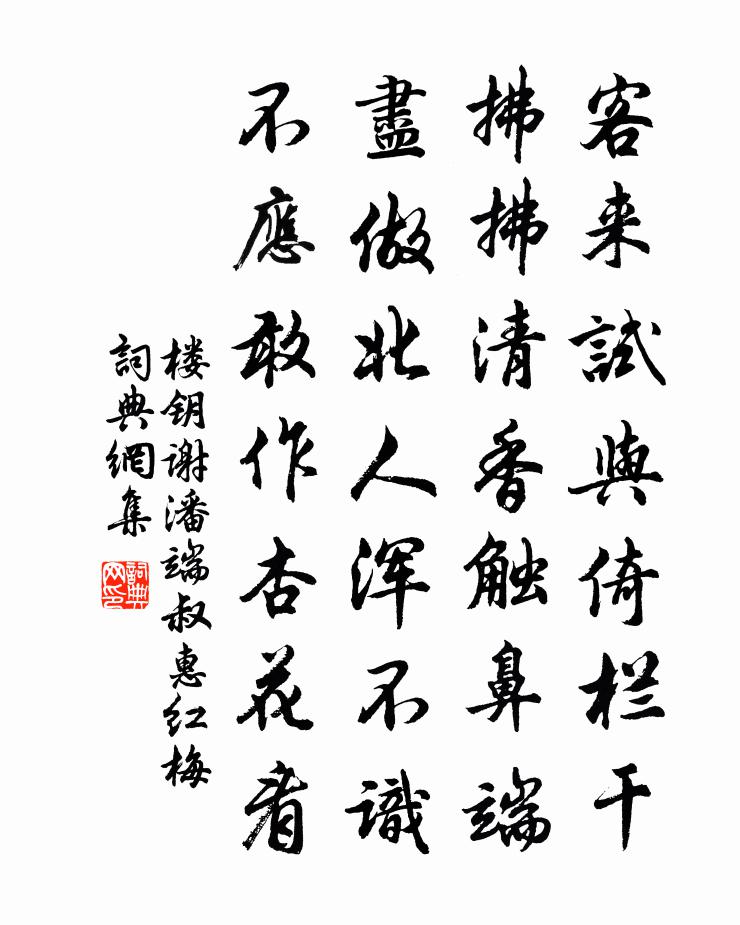 客来試與倚栏干
拂拂清香触鼻端
盡做北人浑不識
不應敢作杏花看
楼钥谢潘端叔惠红梅
詞典網集
詞典网印